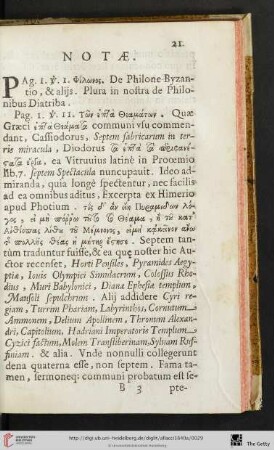 21
NOTÆ.
PAg. 1. ℣. 1. Φίλωνος. De Philone Byzan-
tio, & alijs. Plura in nostra de Philo-
nibus Diatriba.
Pag. 1. ℣. 11. Τῶν ἑπτὰ Θεαμάτων. Quæ
Græci ἑπτὰ Θεάματα communi vsu commen-
dant, Cassiodorus, Septem fabricarum in ter-
ris miracula, Diodorus τὰ ἑπτὰ τὰ
ἔργα, ea Vitruuius latinè in Proœmio
lib. 7. septem Spectacula nuncupauit. Ideo ad-
miranda, quia longè spectentur, nec facilis
ad ea omnibus aditus, Excerpta ex Himerio
apud Photium. τίς δ' ἂν ὡς Πυραμίδων λό-
γος, εἰ μὴ τὸ Θέαμα, ἢ τὸ κατ'
Αἰθίοπας τὸ Μέμνονος, εἰμὴ
ὁ πολλῆς θέας ἢ μάτης ἔστησε. Septem tan-
tùm traduntur fuisse, & ea quę noster hic Au-
ctor recenset, Horti Pensiles, Pyramides Aegy-
ptiæ, Iouis Olympici Simulacrum, Colossus Rho-
dius, Muri Babylonici, Diana Ephesiæ templum,
Mausoli sepulchrum. Alij addidere Cyri re-
giam, Turrem Phariam, Labyrinthos, Cornutum
Ammonem, Delium Apollinem, Thronum Alexan-
dri, Capitolium, Hadriani Imperatoris Templum
Cyzici factum, Molem Transtiberinam, Syluam Ruf-
finiam, & alia. Vnde nonnulli collegerunt
dena quaterna esse, non septem. Fama ta-
men, sermoneq; communi probatum est se-
B 3 pte-
http://digi.ub.uni-heidelberg.de/diglit/allacci1640a/0029
© Universitätsbibliothek Heidelberg